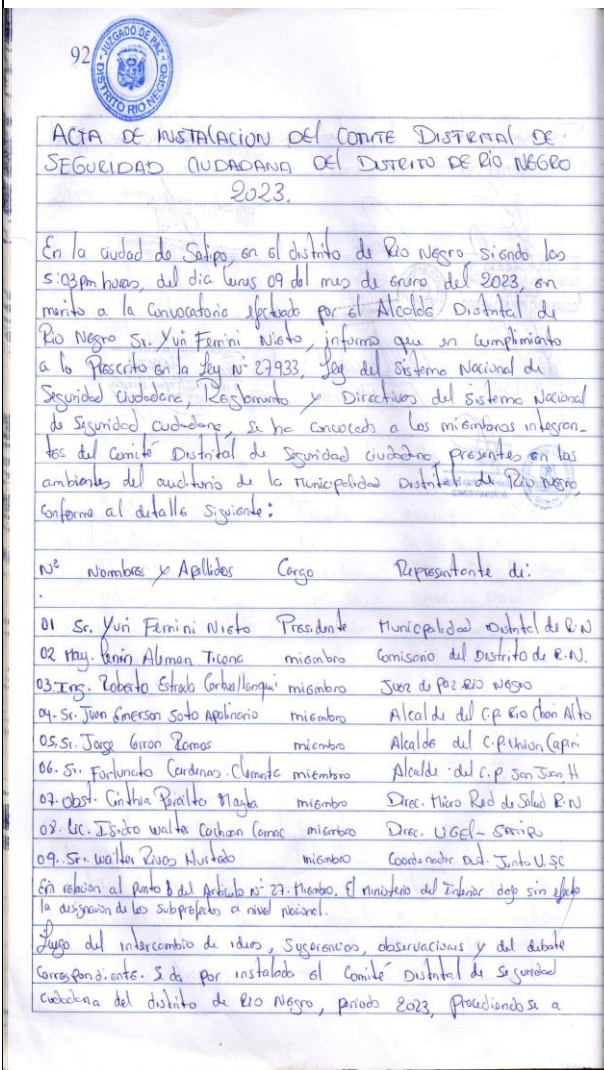 92
JUZGADO DE PAZ
DISTRITO RIO NEGRO
ACTA DE INSTALACION DEL COMITE DISTRITAL DE
SEGURIDAD CIUDADANA DEL DISTRITO DE RIO NEGRO
2023.
En la ciudad de Satipo, en el distrito de Rio Negro, siendo las
5:03pm horas, del dia lunes 09 del mes de enero del 2023, en
merito a la Convocatoria efectuado por el Alcalde Distrital de
Rio Negro Sr. Yuri Ferrini Nieto, informo que en cumplimiento
a lo Prescrito en la Ley N° 27933, Ley del Sistema Nacional de
Seguridad Ciudadana, Reglamento y Directivas del Sistema Nacional
de Seguridad Ciudadana, se ha convocado a los miembros integran-
tes del Comité Distrital de Seguridad ciudadana, presentes en los
ambientes del auditorio de la Municipalidad Distrital de Rio Negro,
Conforme al detalle Siguiente:
N° Nombres y Apellidos Cargo Representante de:
01 Sr. Yuri Ferrini Nieto Presidente Municipalidad Distrital de R.N
02 May. Aleman Ticona miembro Comisario del Distrito de R.N.
03. Ing. Roberto Estrada miembro Juez de Paz Rio Negro
04. Sr. Juan Emerson Soto Apolinario miembro Alcalde del C.P. Rio Chari Alto
05. Sr. Jorge Ramos miembro Alcalde del C.P. Union Capiri
06. Sr. Fortunato Cardenas Clemente miembro Alcalde del C.P. San Juan H
07. Obst. Cinthia Peralta Mayta miembro Direc. Micro Red de Salud R.N
08. Lic. Isidro Walter miembro Direc. UGEL - Satipo
09. Sr. Walter Rivas Hurtado miembro Coordinador Dist. Junta V.SC
En relacion al punto del Articulo N° 27. Miembro. El ministerio del Interior dejo sin efecto
la designacion de los subprefectos a nivel nacional.
Luego del intercambio de ideas, Sugerencias, observaciones y del debate
Correspondiente. Se da por instalado el Comité Distrital de Seguridad
Ciudadana del distrito de Rio Negro, periodo 2023, procediendose a